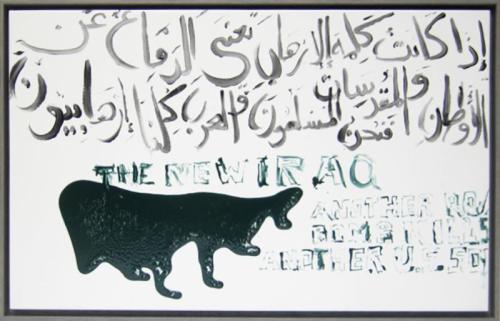 إذا كانت كلمة الإرهاب تعني الدفاع عن
الأوطان والمقدسات فنحن المسلمون والعرب كلنا إرهابيون
THE NEW IRAQ
ANOTHER ROA
BOMB KILLS
ANOTHER U.S. SO